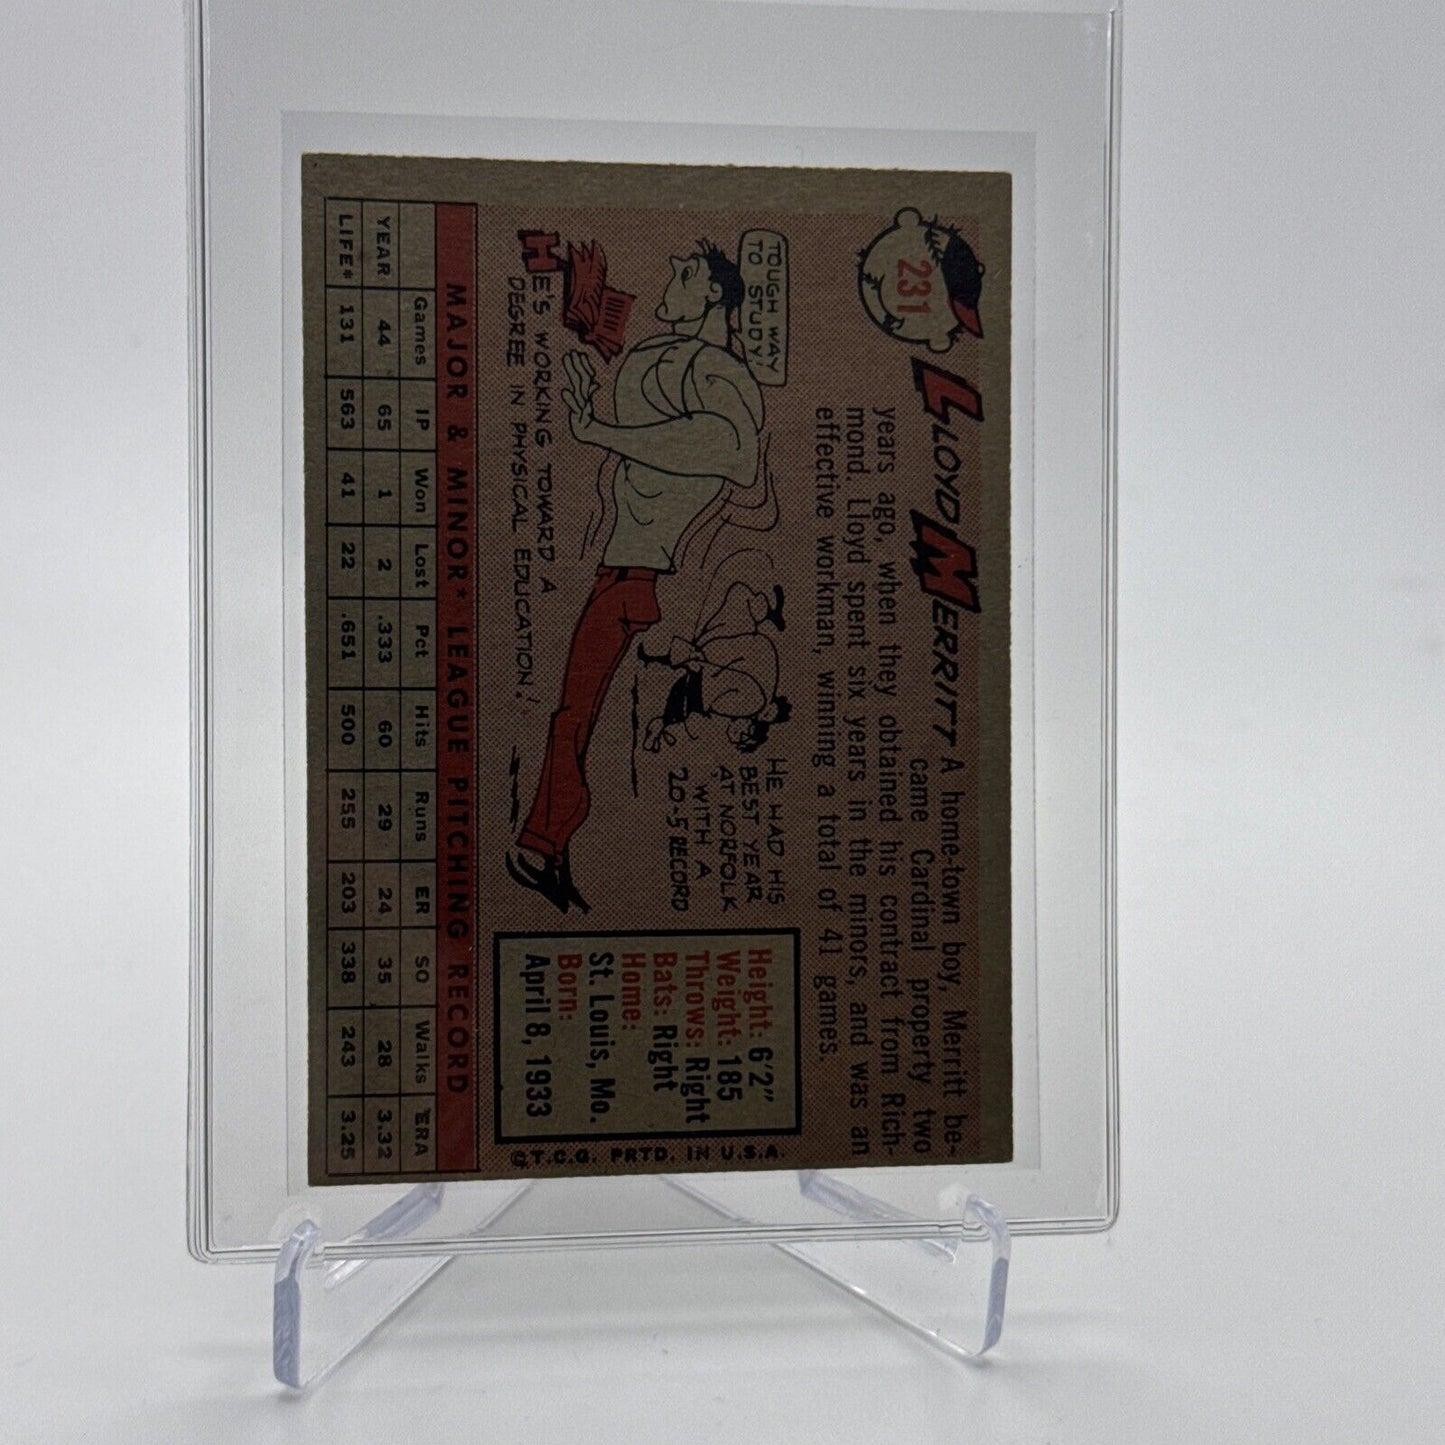 231
LLOYD MERRITT A home-town boy, Merritt be-
came Cardinal property two
years ago, when they obtained his contract from Rich-
mond. Lloyd spent six years in the minors, and was an
effective workman, winning a total of 41 games.
TOUGH WAY
TO STUDY!
HE'S WORKING TOWARD A
DEGREE IN PHYSICAL EDUCATION!
HE HAD HIS
BEST YEAR
AT NORFOLK
WITH A
20-5 RECORD
Height: 6'2"
Weight: 185
Throws: Right
Bats: Right
Home:
St. Louis, Mo.
Born:
April 8, 1933
©T.C.G. PRTD. IN U.S.A.
MAJOR & MINOR* LEAGUE PITCHING RECORD
Games IP Won Lost Pct Hits Runs ER SO Walks ERA
YEAR 44 65 1 2 .333 60 29 24 35 28 3.32
LIFE* 131 563 41 22 .651 500 255 203 338 243 3.25